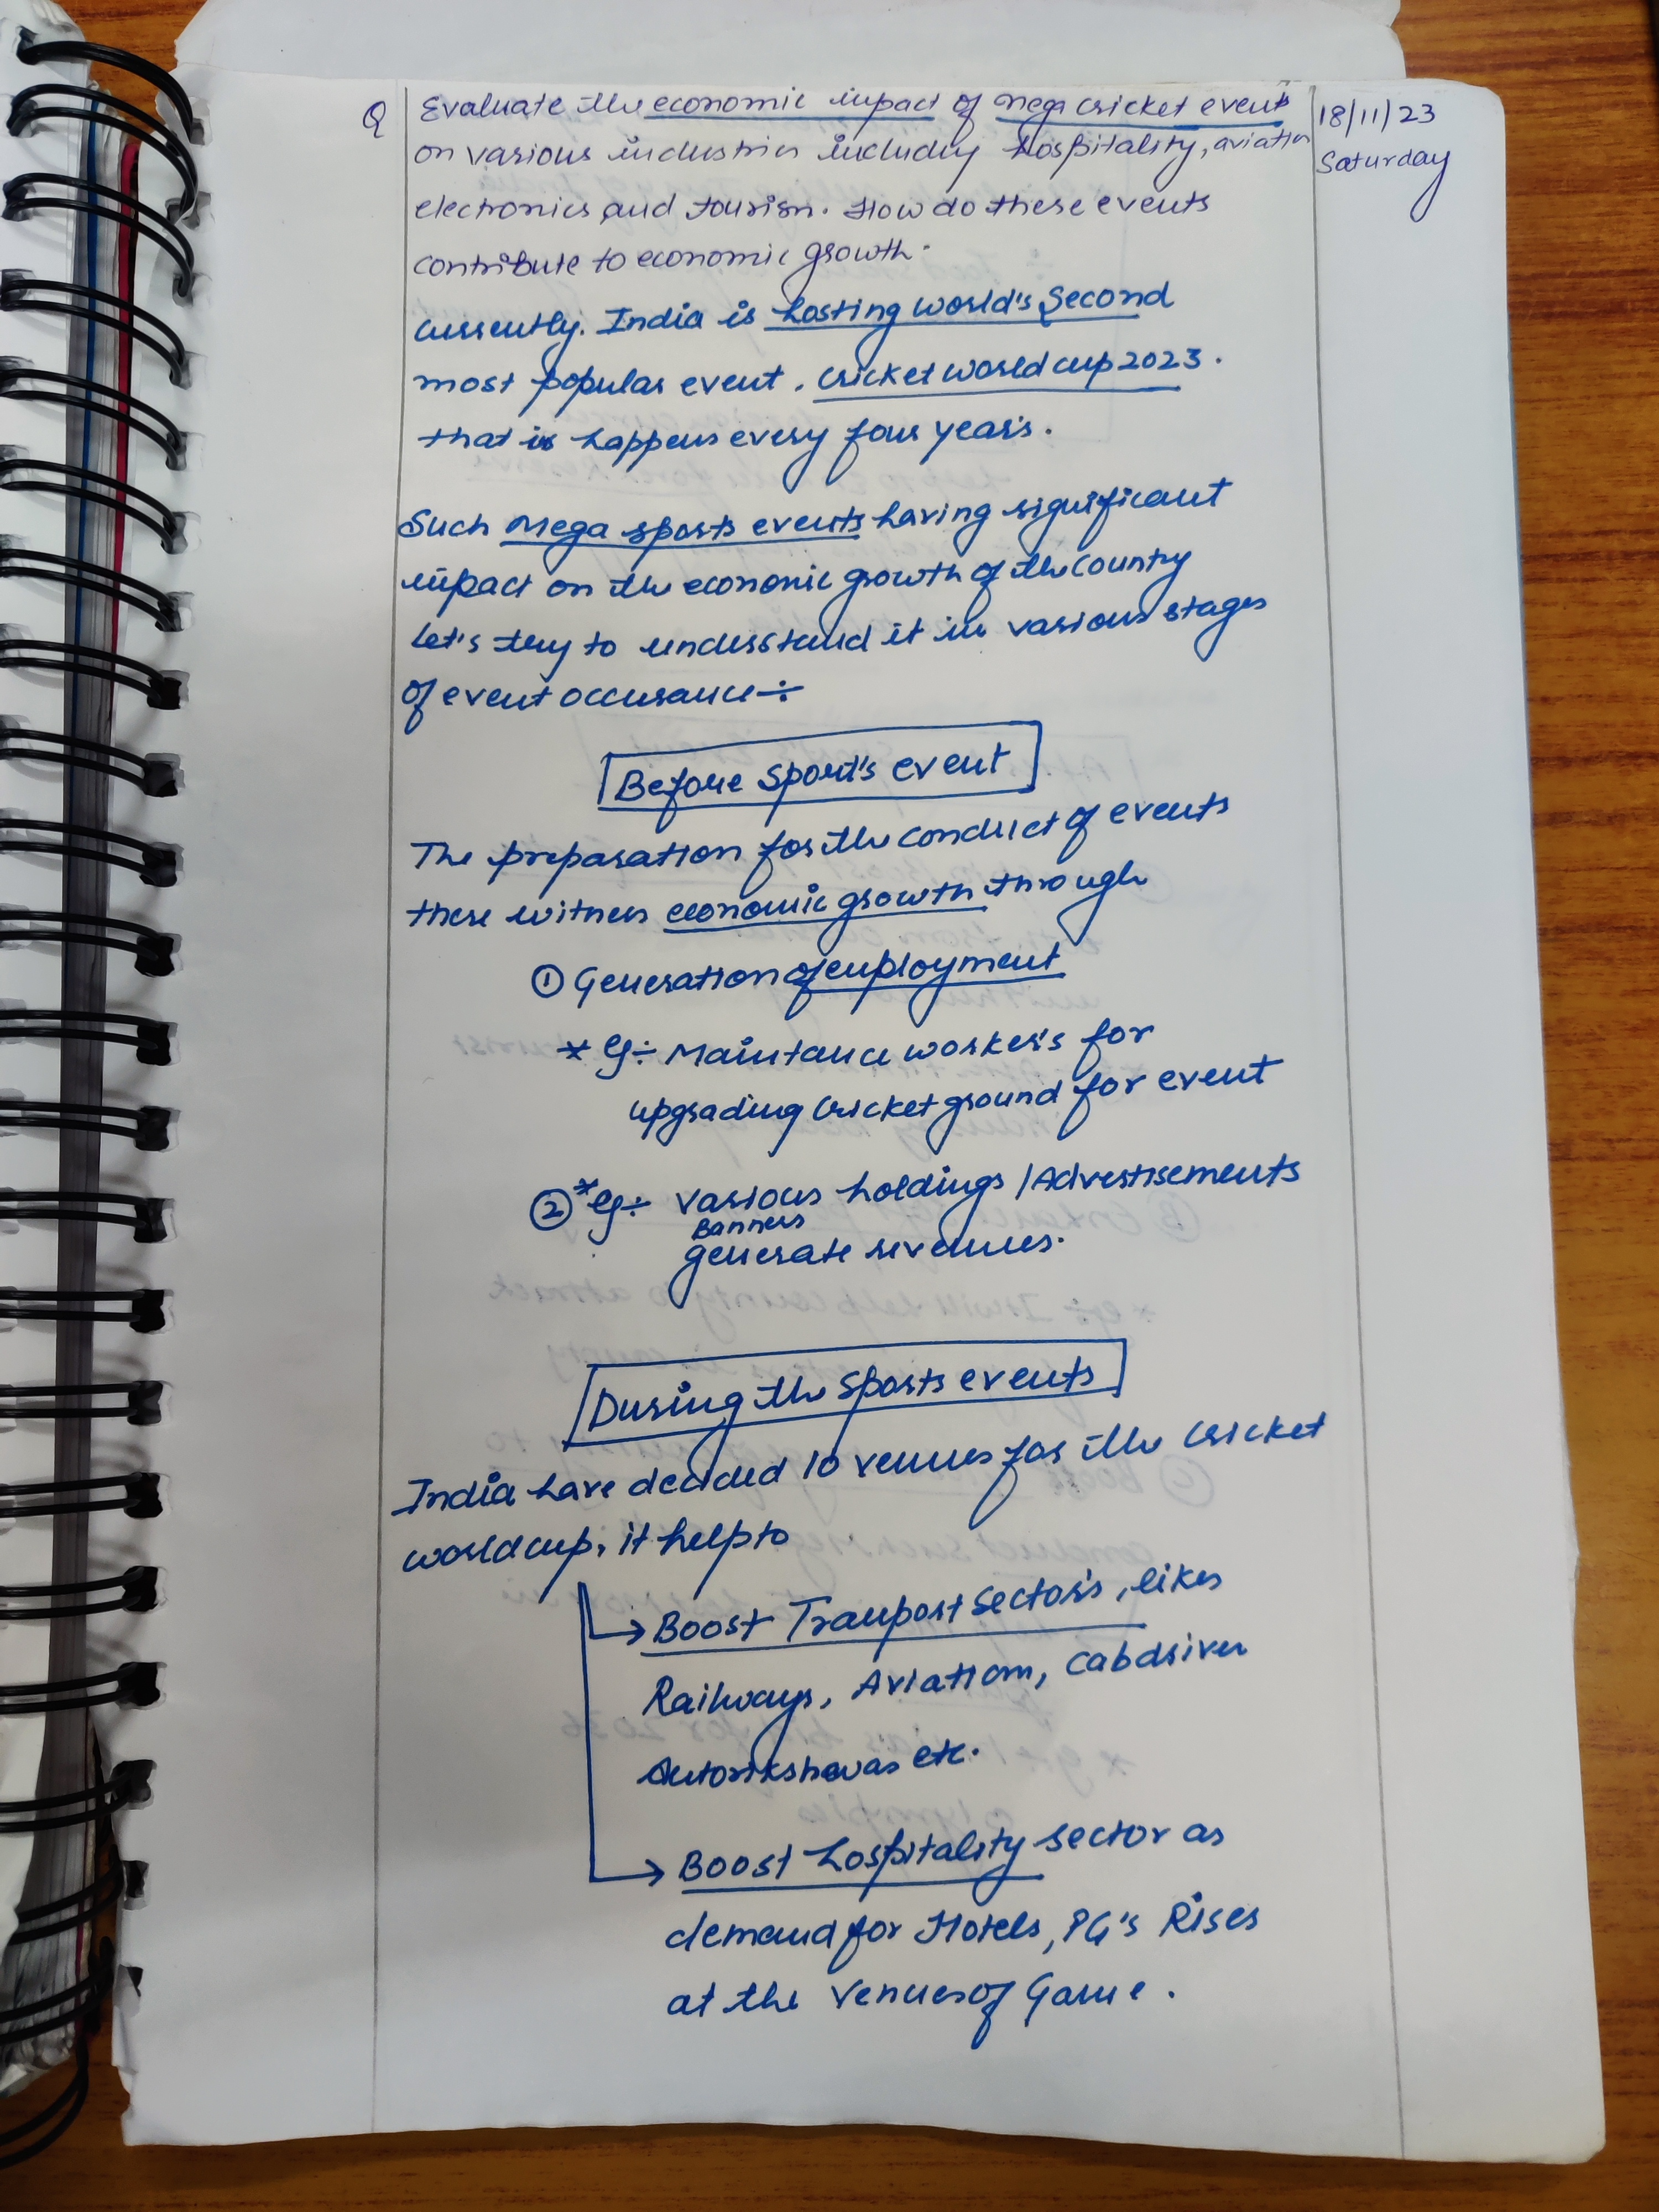 Q Evaluate the economic impact of mega cricket events
on various industries including hospitality, aviation
electronics and tourism. How do these events
contribute to economic growth.
18/11/23
Saturday
currently. India is hosting world's Second
most popular event, cricket world cup 2023.
that is happens every four years.
Such Mega sports events having significant
impact on the economic growth of the country
Let's try to understand it in various stages
of event occurance÷
Before Sport's event
The preparation for the conduct of events
there witness economic growth through
① Generation of employment
* eg÷ Maintance worker's for
upgrading cricket ground for event
② *eg÷ various holdings / Advertisements
Banners
generate revenues.
During the Sports events
India have decided 10 venues for the cricket
world cup, it help to
→ Boost Tranport Sector's, likes
Railways, Aviation, cabdriver
Autorikshawas etc.
→ Boost hospitality sector as
demand for Hotels, PG's Rises
at the venues of Game.